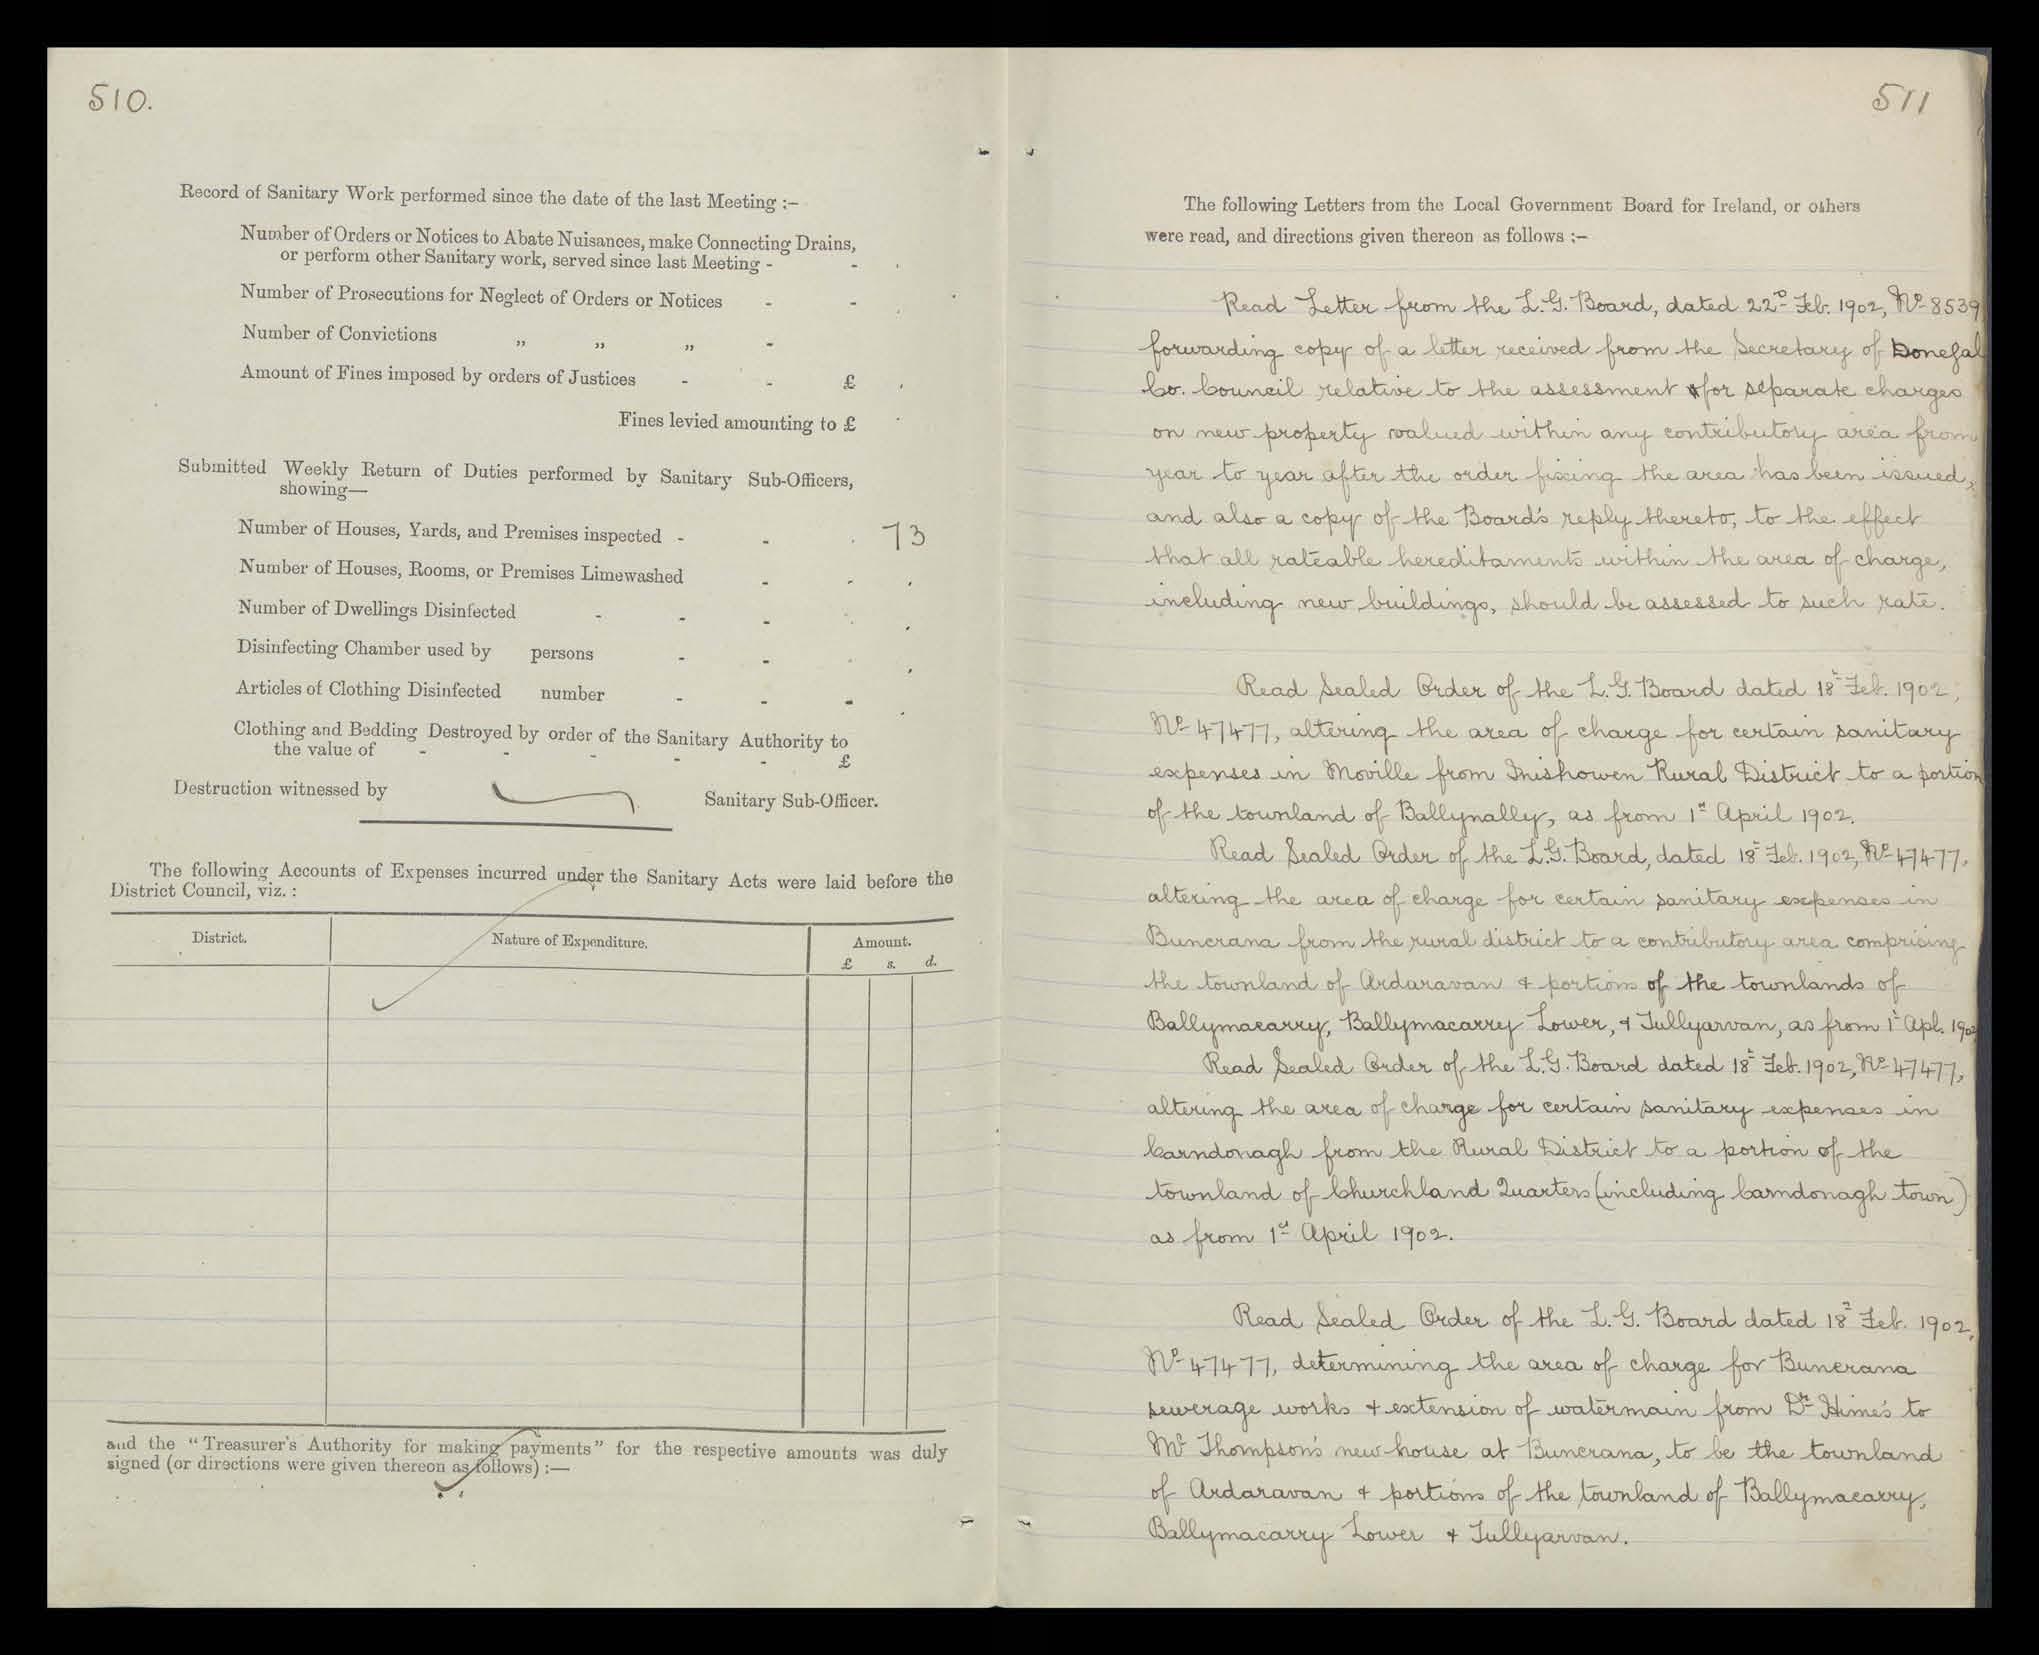 510.
Record of Sanitary Work performed since the date of the last Meeting :–
Number of Orders or Notices to Abate Nuisances, make Connecting Drains,
or perform other Sanitary work, served since last Meeting - -
Number of Prosecutions for Neglect of Orders or Notices - -
Number of Convictions „ „ „ -
Amount of Fines imposed by orders of Justices - - £
Fines levied amounting to £
Submitted Weekly Return of Duties performed by Sanitary Sub-Officers,
showing—
Number of Houses, Yards, and Premises inspected - - 73
Number of Houses, Rooms, or Premises Limewashed - -
Number of Dwellings Disinfected - - -
Disinfecting Chamber used by persons - -
Articles of Clothing Disinfected number - - -
Clothing and Bedding Destroyed by order of the Sanitary Authority to
the value of - - - - - £
Destruction witnessed by Sanitary Sub-Officer.
The following Accounts of Expenses incurred under the Sanitary Acts were laid before the
District Council, viz. :
District. Nature of Expenditure. Amount.
£ s. d.
and the "Treasurer's Authority for making payments" for the respective amounts was duly
signed (or directions were given thereon as follows) :—
511
The following Letters from the Local Government Board for Ireland, or others
were read, and directions given thereon as follows :–
Read Letter from the L.G. Board, dated 22nd Feb. 1902, No 8539
forwarding copy of a letter received from the Secretary of Donegal
Co. Council relative to the assessment for separate charges
on new property valued within any contributory area from
year to year after the order fixing the area has been issued,
and also a copy of the Board's reply thereto, to the effect
that all rateable hereditaments within the area of charge,
including new buildings, should be assessed to such rate.
Read Sealed Order of the L.G. Board dated 18t Feb. 1902,
No 47477, altering the area of charge for certain sanitary
expenses in Moville from Inishowen Rural District to a portion
of the townland of Ballynally, as from 1st April 1902.
Read Sealed Order of the L.G. Board, dated 18t Feb. 1902, No 47477,
altering the area of charge for certain sanitary expenses in
Buncrana from the rural district to a contributory area comprising
the townland of Ardaravan & portions of the townlands of
Ballymacarry, Ballymacarry Lower, & Tullyarvan, as from 1t Apl. 1902
Read Sealed Order of the L.G. Board dated 18t Feb. 1902, No 47477,
altering the area of charge for certain sanitary expenses in
Carndonagh from the Rural District to a portion of the
townland of Churchland Quarters (including Carndonagh town)
as from 1st April 1902.
Read Sealed Order of the L.G. Board dated 18t Feb. 1902,
No 47477, determining the area of charge for Buncrana
sewerage works & extension of watermain from Dr Hime's to
Mr Thompson's new house at Buncrana, to be the townland
of Ardaravan & portions of the townland of Ballymacarry,
Ballymacarry Lower & Tullyarvan.